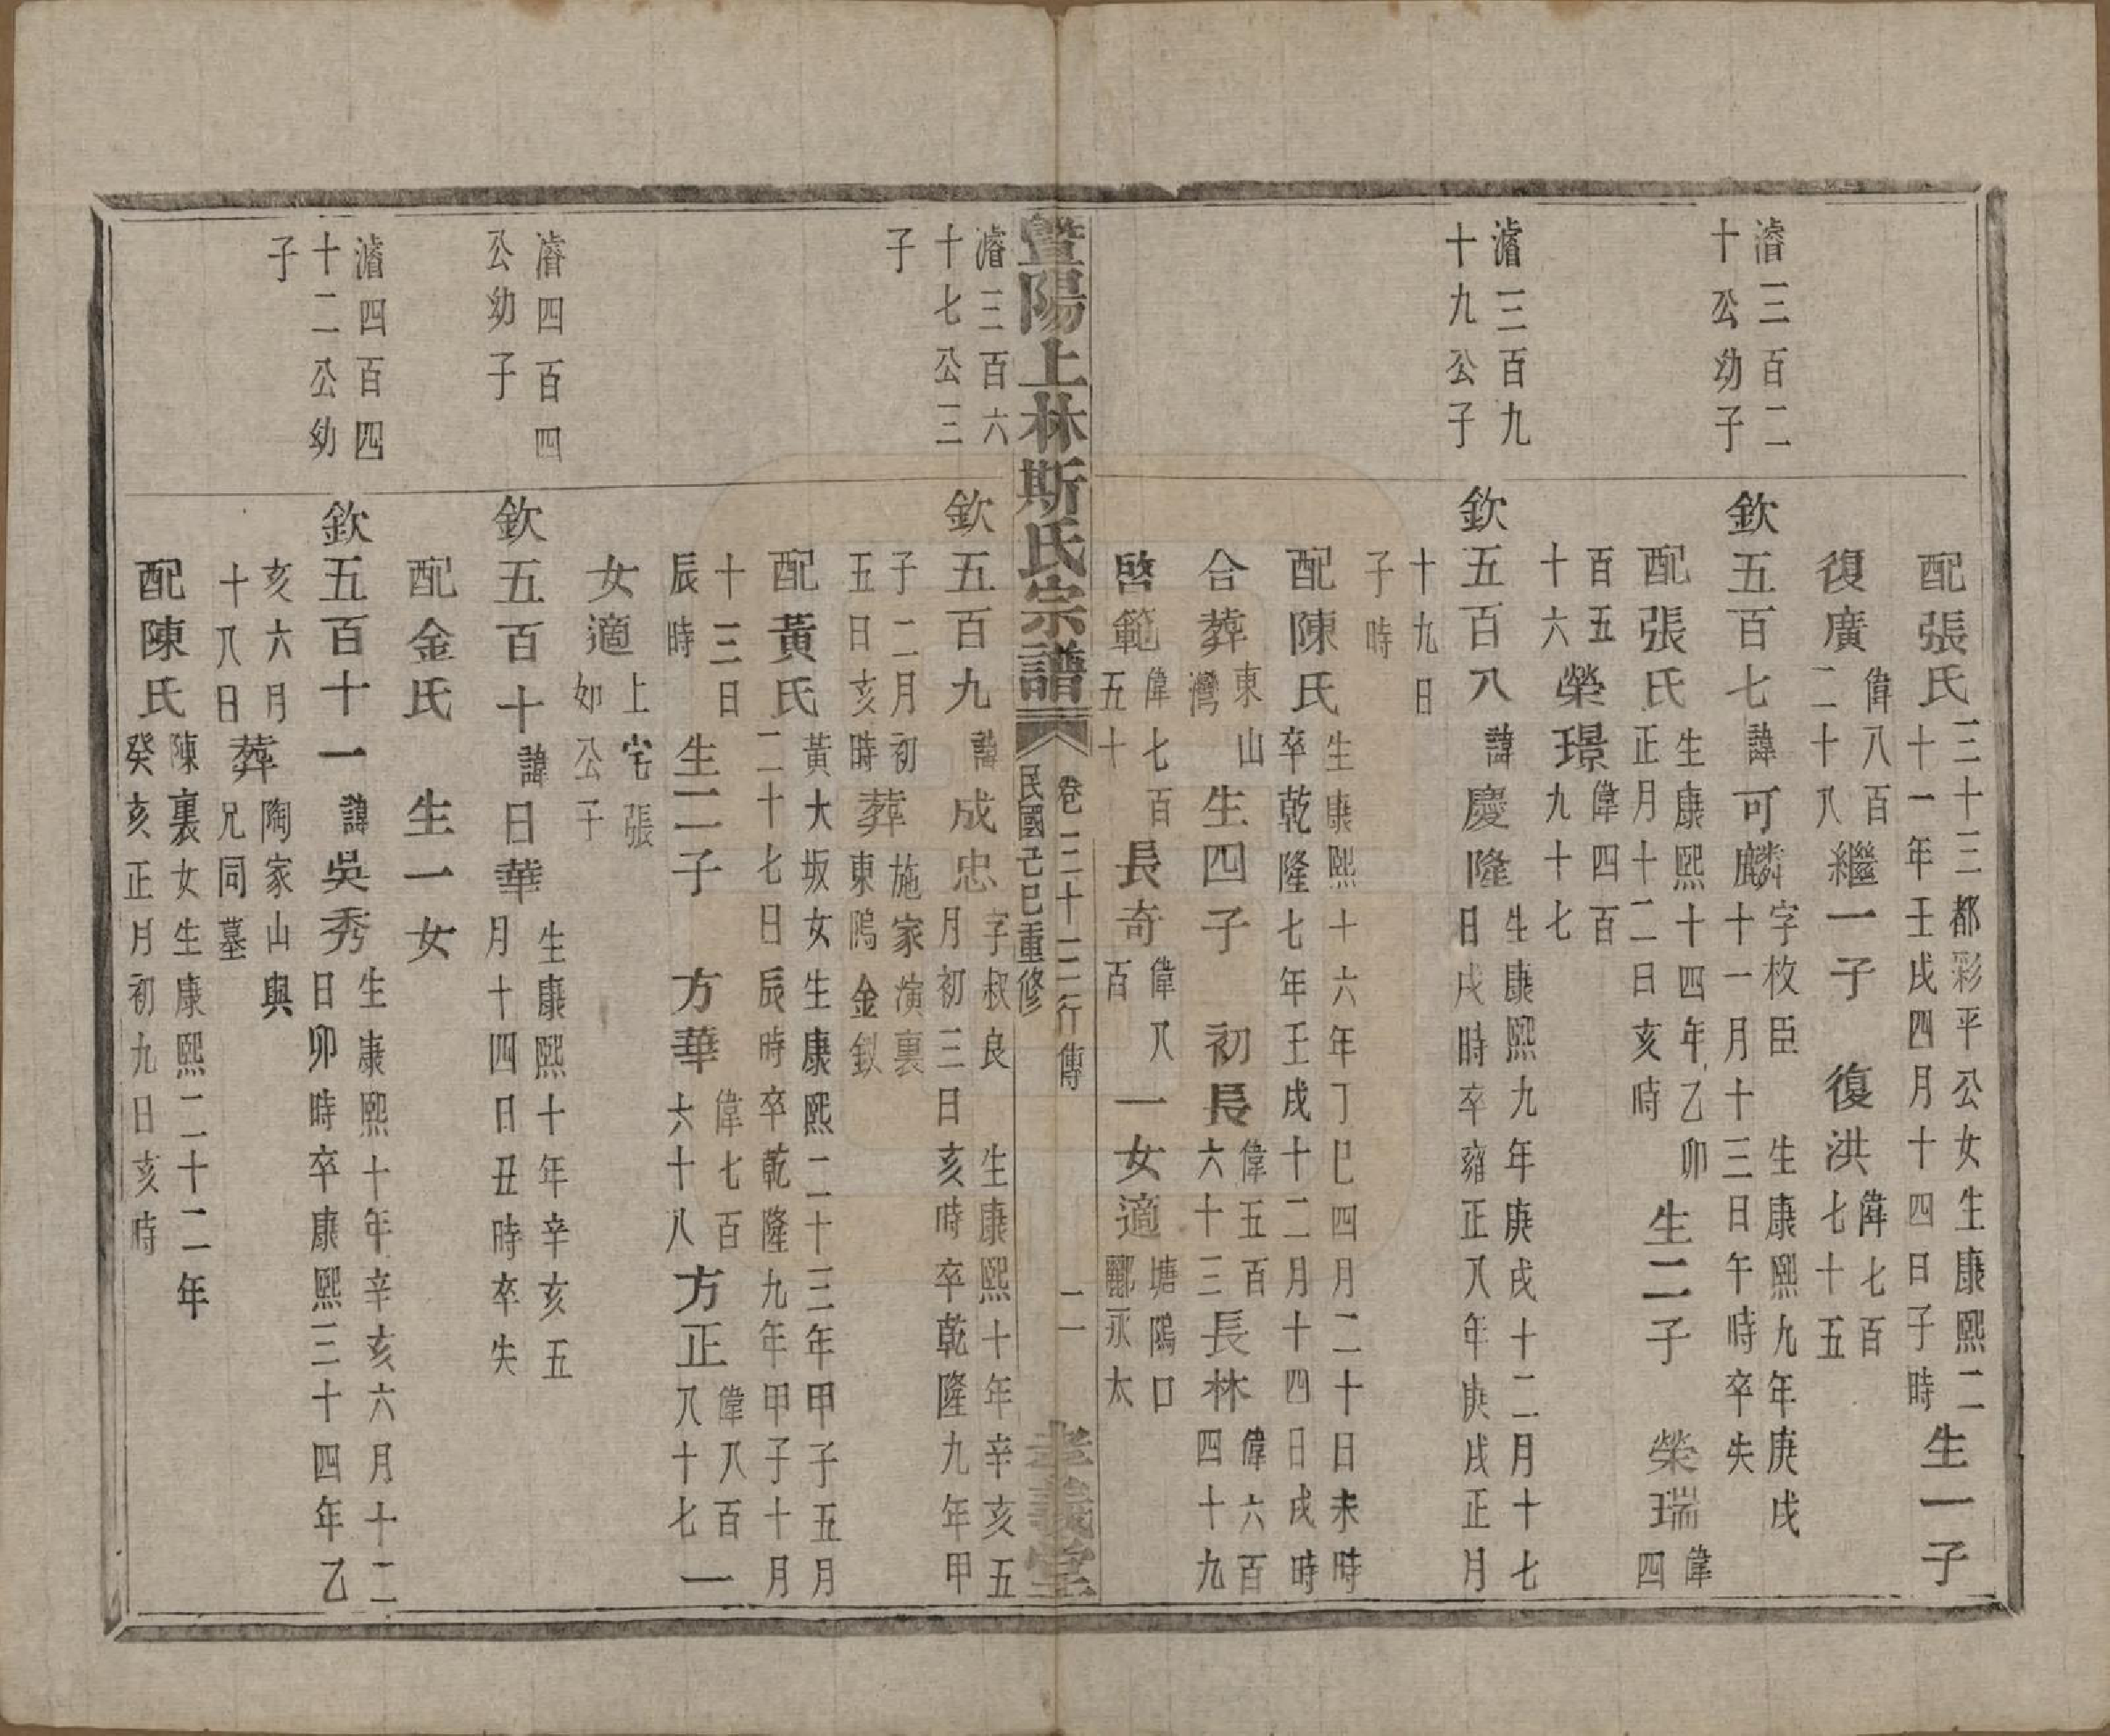 配張氏三十三都彩平公女生康熙二
十一年壬戌四月十四日子時生一子
復廣偉八百
二十八繼一子　復洪偉七百
七十五
濬三百二
十公幼子
欽五百七諱可麟字枚臣　生康熙九年庚戌
十一月十三日午時卒失
配張氏生康熙十四年乙卯
正月十二日亥時生二子　榮瑞偉四
百五
十六榮璟偉四百
九十七
濬三百九
十九公子
欽五百八諱慶隆生康熙九年庚戌十二月十七
日戌時卒雍正八年庚戌正月
十九日
子時
配陳氏生康熙十六年丁巳四月二十日未時
卒乾隆七年壬戌十二月十四日戌時
合葬東山
灣　生四子　初長偉五百
六十三長林偉六百
四十九
啓範偉七百
五十長奇偉八
百一女適塘隖口
酈永太
暨陽上林斯氏宗譜　卷三十三行傳　民國己巳重修　二　孝義堂
濬三百六
十七公三
子
欽五百九諱成忠字叔良　生康熙十年辛亥五
月初三日亥時卒乾隆九年甲
子二月初
五日亥時葬施家演裏
東隖金釵
配黃氏黃大坂女生康熙二十三年甲子五月
二十七日辰時卒乾隆九年甲子十月
十三日
辰時　生二子　方華偉七百
六十八方正偉八百
八十七一
女適上宅張
如公子
濬四百四
公幼子
欽五百十諱日華生康熙十年辛亥五
月十四日丑時卒失
配金氏　生一女
濬四百四
十二公幼
子
欽五百十一諱吳秀生康熙十年辛亥六月十二
日卯時卒康熙三十四年乙
亥六月
十八日葬陶家山與
兄同墓
配陳氏陳裏女生康熙二十二年
癸亥正月初九日亥時